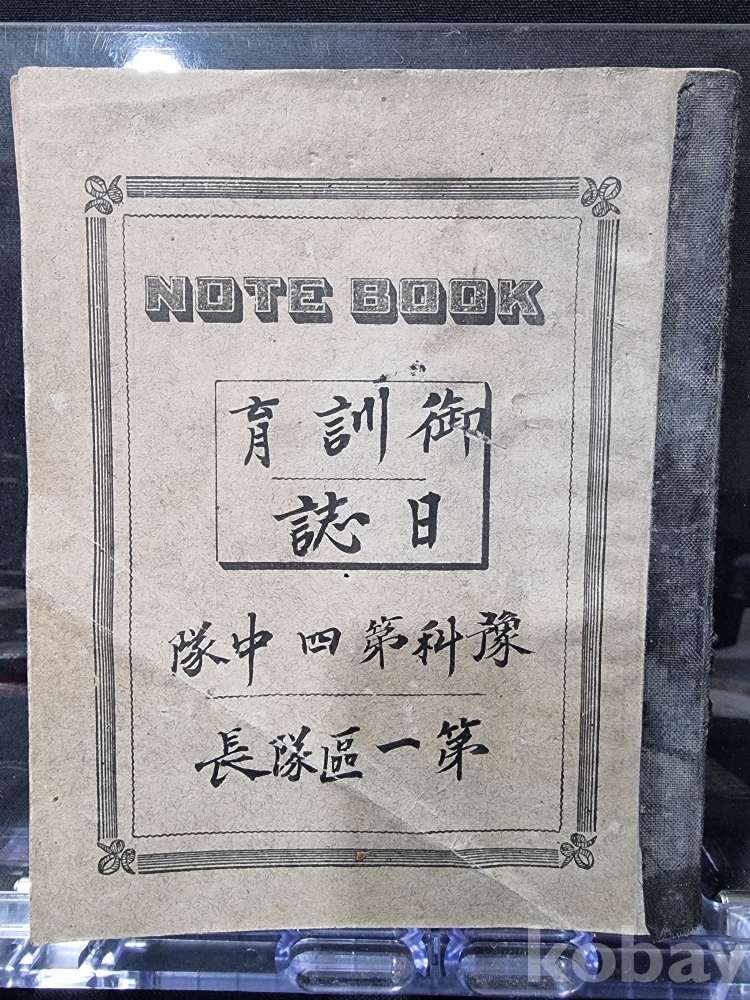 NOTE BOOK
御訓育
日誌
豫科第四中隊
第一區隊長
kobay